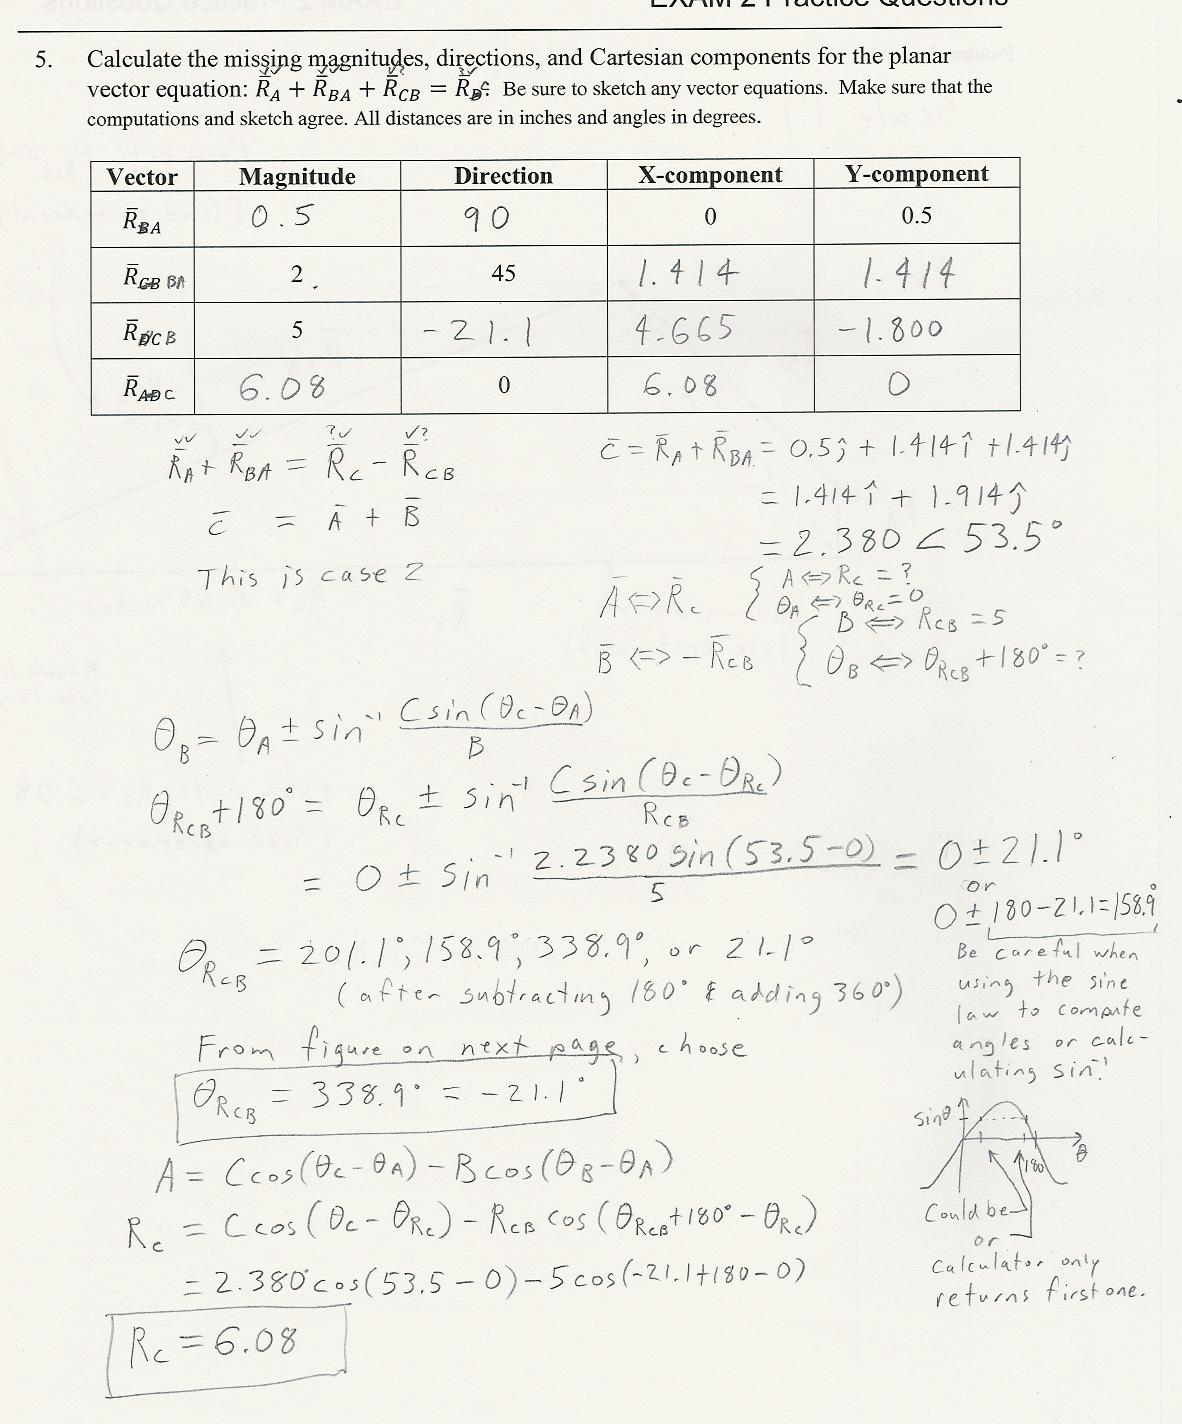 EXAM 2 Practice Questions
5. Calculate the missing magnitudes, directions, and Cartesian components for the planar
vector equation: R̄_A + R̄_BA + R̄_CB = R̄_C. Be sure to sketch any vector equations. Make sure that the
computations and sketch agree. All distances are in inches and angles in degrees.
Vector Magnitude Direction X-component Y-component
R̄_BA 0.5 90 0 0.5
R̄_CB BA 2. 45 1.414 1.414
R̄_DC CB 5 -21.1 4.665 -1.800
R̄_AD C 6.08 0 6.08 0
✓✓ ✓✓ ?✓ ✓?
R̄_A + R̄_BA = R̄_C - R̄_CB
C̄ = Ā + B̄
This is case 2
C̄ = R̄_A + R̄_BA = 0.5ĵ + 1.414î + 1.414ĵ
= 1.414î + 1.914ĵ
= 2.380 < 53.5°
Ā ⇔ R̄_C { A ⇔ R_C = ?
θ_A ⇔ θ_RC = 0
B̄ ⇔ - R̄_CB { B ⇔ R_CB = 5
θ_B ⇔ θ_RCB + 180° = ?
θ_B = θ_A ± sin⁻¹ C sin(θ_C - θ_A) / B
θ_RCB + 180° = θ_RC ± sin⁻¹ C sin(θ_C - θ_RC) / R_CB
= 0 ± sin⁻¹ 2.2380 sin(53.5-0) / 5 = 0 ± 21.1°
or
0 ± 180-21.1=158.9°
θ_RCB = 201.1°, 158.9°, 338.9°, or 21.1°
(after subtracting 180° & adding 360°)
From figure on next page, choose
θ_RCB = 338.9° = -21.1°
Be careful when
using the sine
law to compute
angles or calc-
ulating sin⁻¹!
sinθ
θ
180
Could be
or
Calculator only
returns first one.
A = C cos(θ_C - θ_A) - B cos(θ_B - θ_A)
R_C = C cos(θ_C - θ_RC) - R_CB cos(θ_RCB + 180° - θ_RC)
= 2.380 cos(53.5 - 0) - 5 cos(-21.1+180-0)
R_C = 6.08